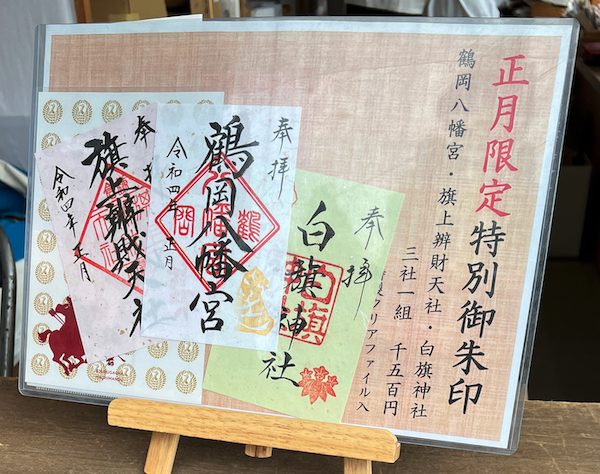 正月限定特別御朱印
鶴岡八幡宮・旗上辨財天社・白旗神社
三社一組 千五百円
クリアファイル入
奉拝
白旗神社
白旗
奉拝
鶴岡八幡宮
令和四年正月
奉
旗上辨財天社
令和四年正月